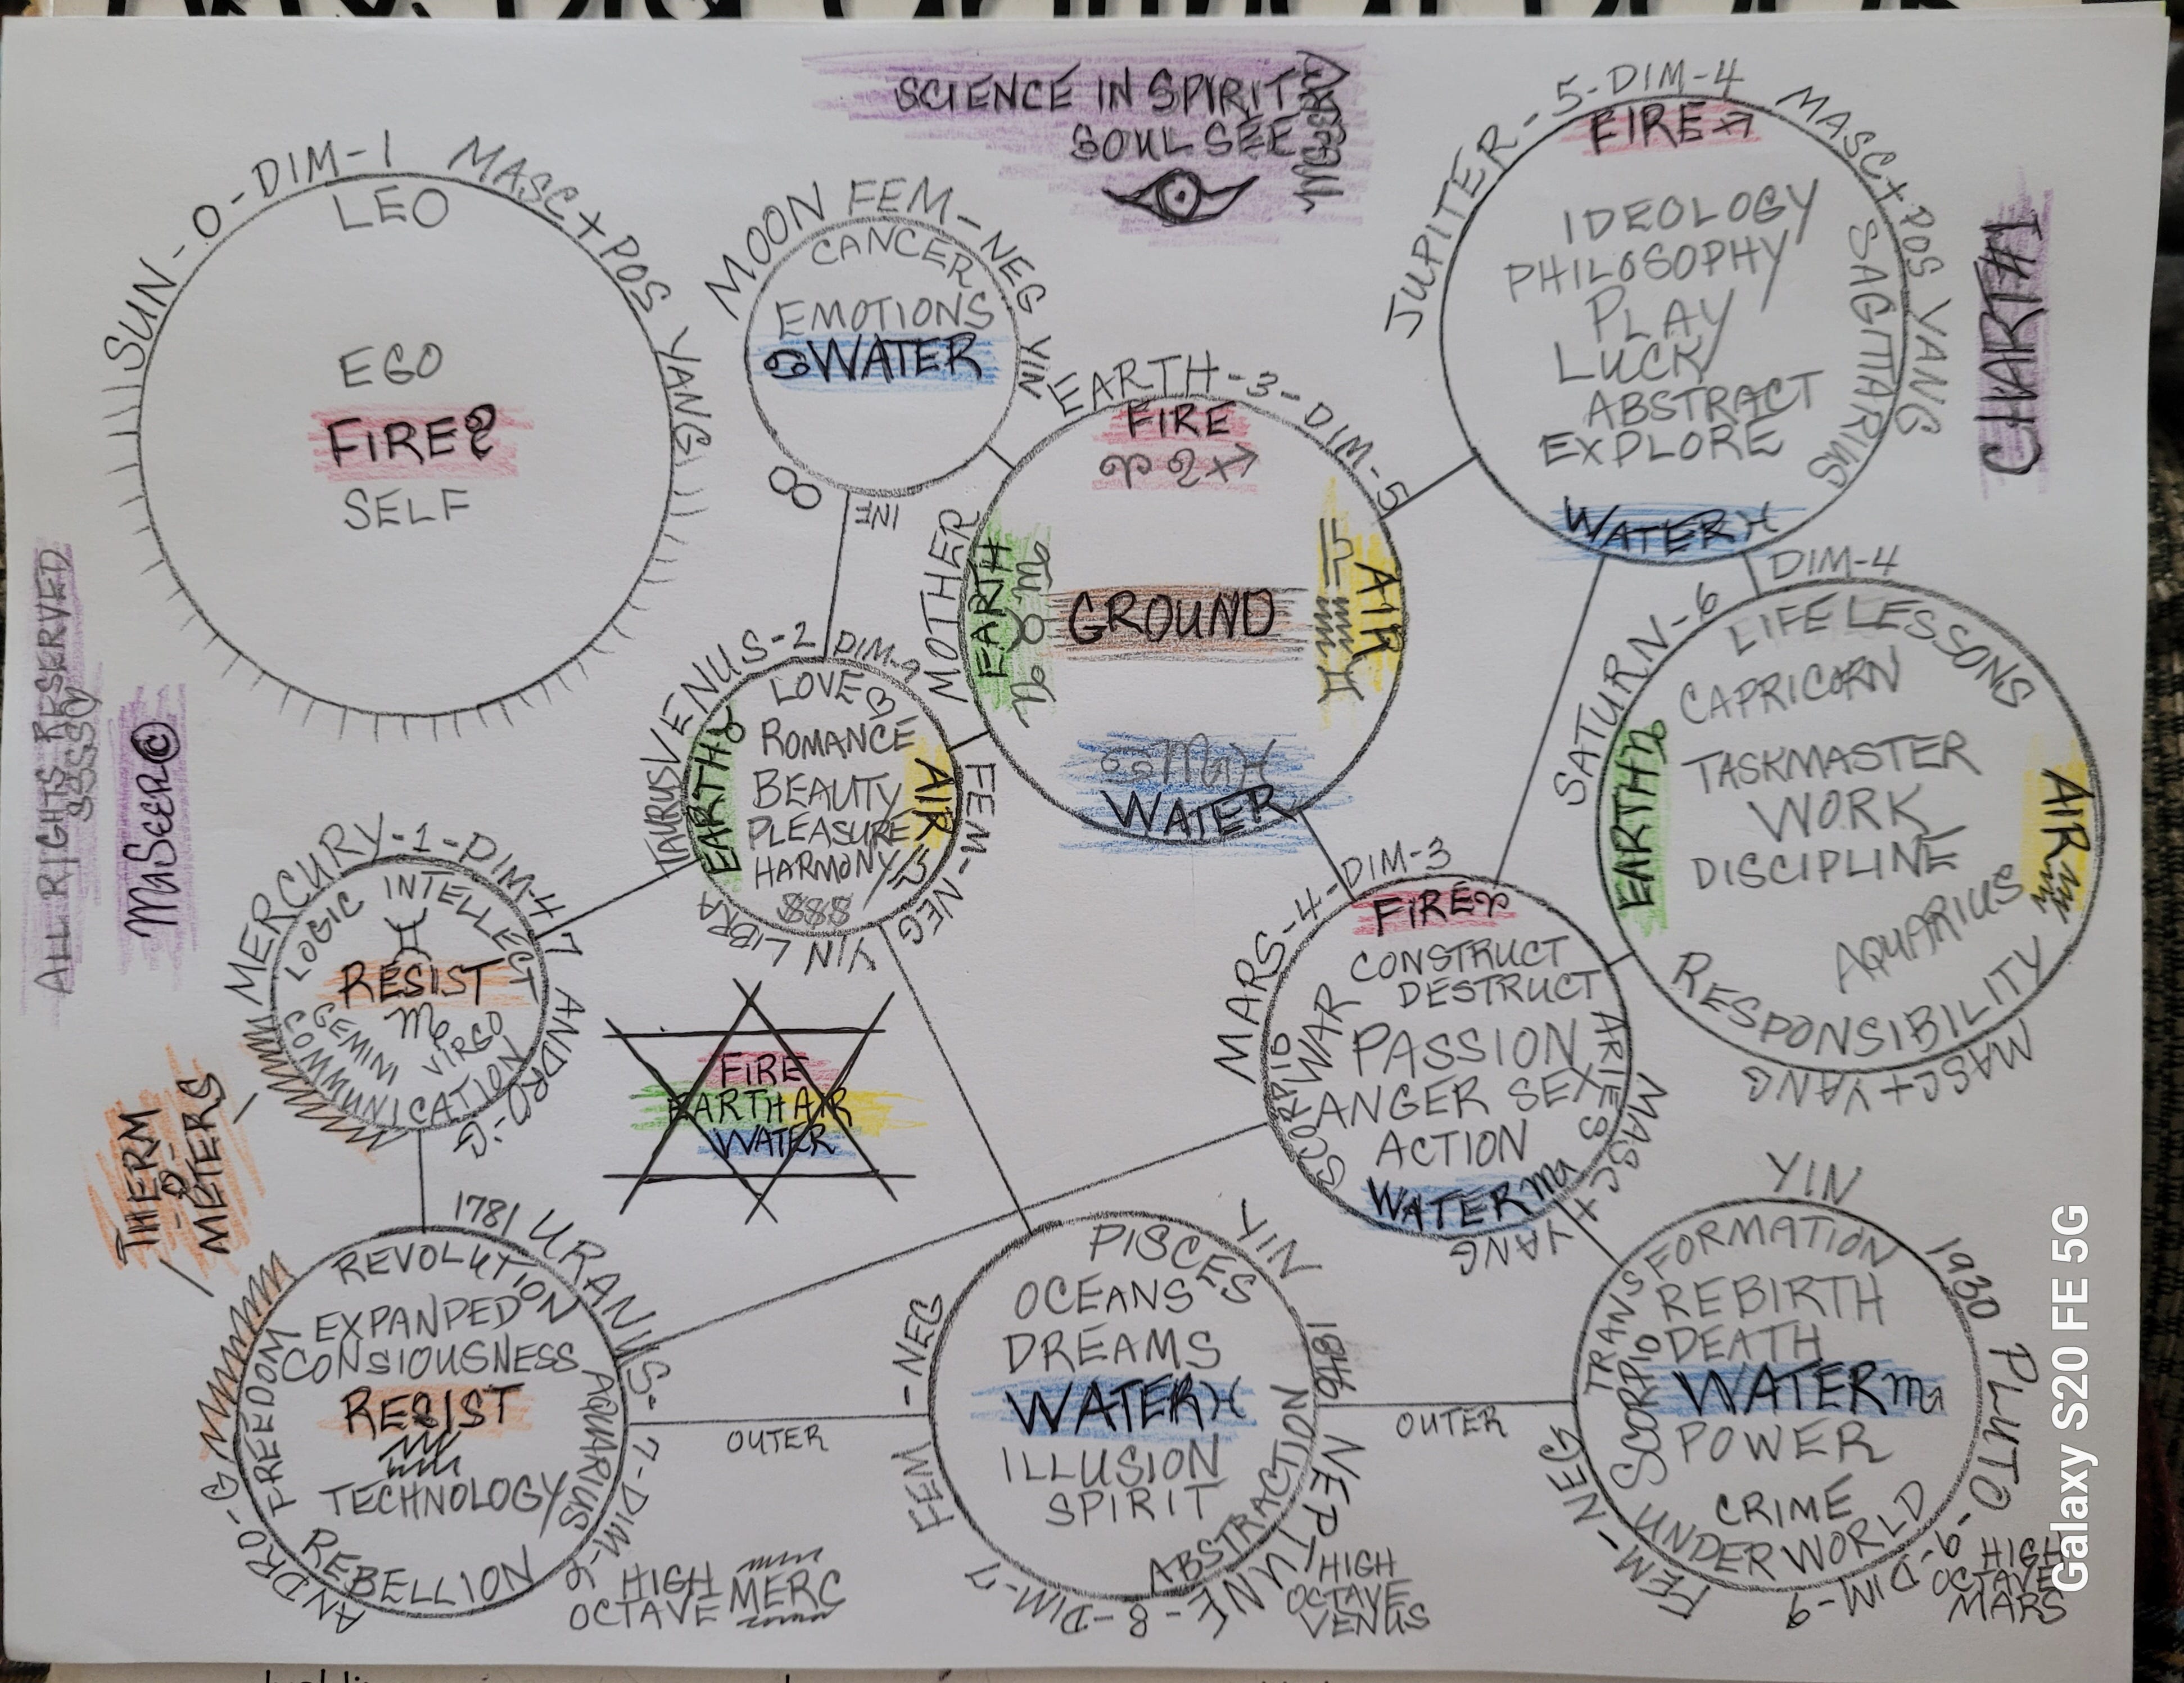 SCIENCE IN SPIRIT
SOUL SEE
CHART#1
SUN-0-DIM-1 MASC+POS YANG
LEO
EGO
FIRE♌
SELF
MOON FEM-NEG YIN
CANCER
EMOTIONS
♋WATER
8
INE
JUPITER-5-DIM-4 MASC+POS YANG
FIRE♐
IDEOLOGY
PHILOSOPHY
PLAY
LUCK
ABSTRACT
EXPLORE
SAGITTARIUS
WATER♓
EARTH-3-DIM-5
MOTHER
FIRE
♈♌♐
EARTH
♑♉♍
GROUND
AIR
♎♒♊
♋♏♓
WATER
VENUS-2 DIM-2
FEM-NEG
YIN
TAURUS
LIBRA
LOVE
ROMANCE
BEAUTY
PLEASURE
HARMONY
$$$
EARTH♉
AIR
♎
SATURN-6 DIM-4
MASC+YANG
LIFE LESSONS
CAPRICORN
TASKMASTER
WORK
DISCIPLINE
AQUARIUS
RESPONSIBILITY
EARTH♑
AIR♒
ALL RIGHTS RESERVED
MaSeer©
MERCURY-1-DIM-4
ANDRO-G
LOGIC INTELLECT
♊
RESIST
♍
GEMINI
VIRGO
COMMUNICATION
THERM
-O-
METERS
FIRE
EARTH AIR
WATER
MARS-4-DIM-3
MASC+
YANG
FIRE♈
CONSTRUCT
DESTRUCT
WAR
PASSION
ANGER SEX
ACTION
SCORPIO
ARIES
WATER♏
1781 URANUS-7-DIM-6
ANDRO-G
REVOLUTION
EXPANDED
CONSIOUSNESS
RESIST
♒
TECHNOLOGY
FREEDOM
AQUARIUS
REBELLION
HIGH
OCTAVE MERC
OUTER
YIN
1846 NEPTUNE-8-DIM-7
FEM-NEG
PISCES
OCEANS
DREAMS
WATER♓
ILLUSION
SPIRIT
ABSTRACTION
HIGH
OCTAVE
VENUS
OUTER
YIN
1930 PLUTO-9-DIM-9
FEM-NEG
TRANSFORMATION
REBIRTH
DEATH
WATER♏
POWER
SCORPIO
CRIME
UNDERWORLD
HIGH
OCTAVE
MARS
Galaxy S20 FE 5G